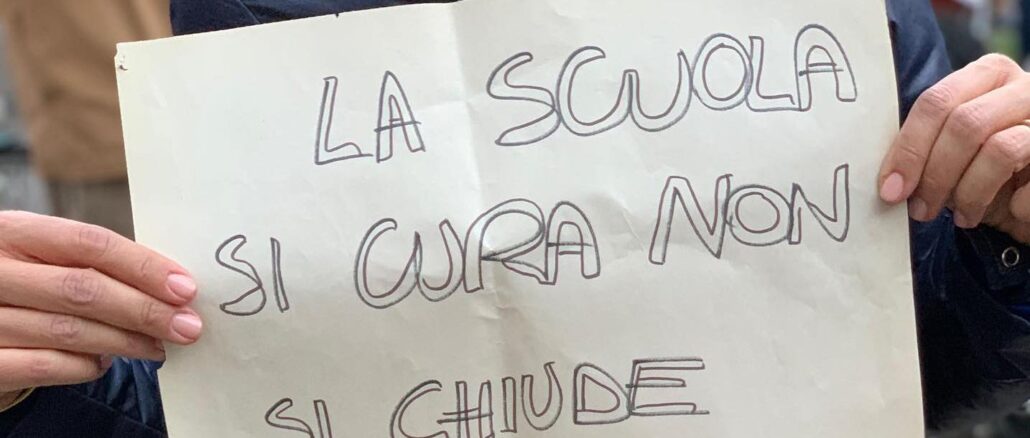 LA SCUOLA
SI CURA NON
SI CHIUDE